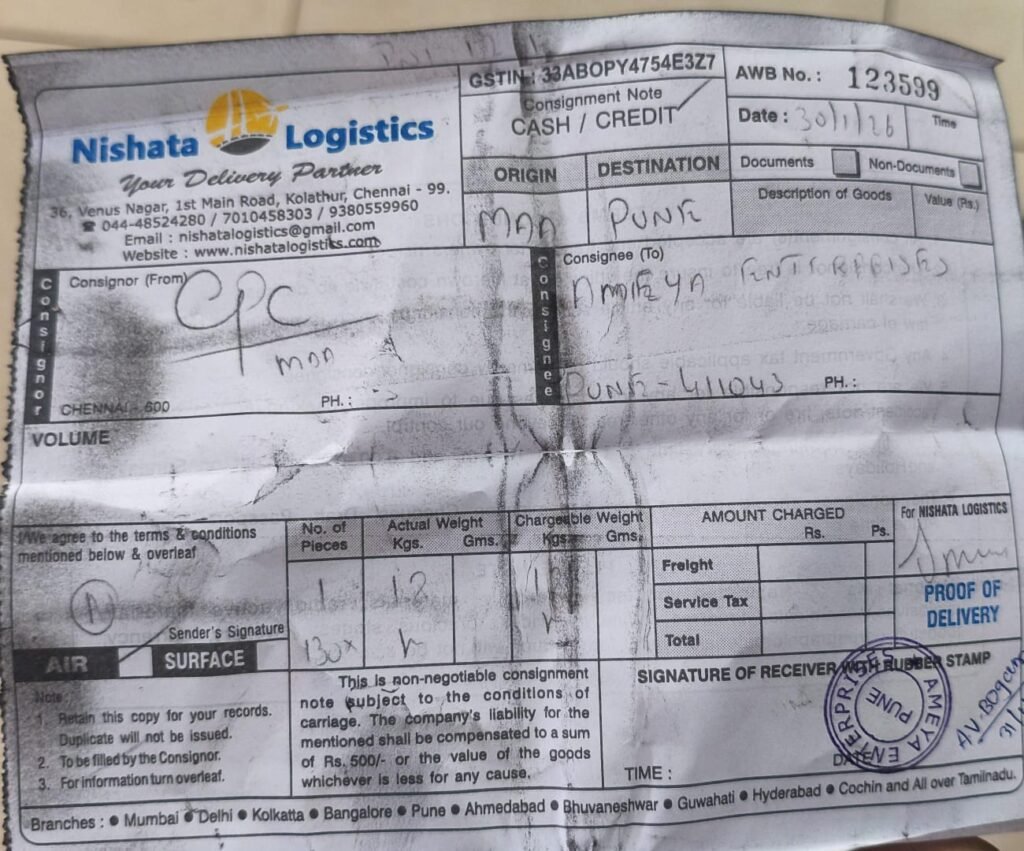 Nishata Logistics
Your Delivery Partner
36, Venus Nagar, 1st Main Road, Kolathur, Chennai - 99.
☎ 044-48524280 / 7010458303 / 9380559960
Email : nishatalogistics@gmail.com
Website : www.nishatalogistics.com
GSTIN : 33ABOPY4754E3Z7
Consignment Note
CASH / CREDIT
AWB No. : 123599
Date : 30/1/26 Time
ORIGIN DESTINATION
MAA PUNE
Documents Non-Documents
Description of Goods Value (Rs.)
Consignor
Consignor (From)
CPC
MAA
CHENNAI - 600 PH. :
Consignee
Consignee (To)
AMEYA ENTERPRISES
PUNE - 411043 PH. :
VOLUME
I/We agree to the terms & conditions
mentioned below & overleaf
Sender's Signature
AIR SURFACE
No. of Pieces
1
Box
Actual Weight
Kgs. Gms.
12
Chargeable Weight
Kgs. Gms.
AMOUNT CHARGED
Rs. Ps.
Freight
Service Tax
Total
For NISHATA LOGISTICS
PROOF OF
DELIVERY
Note :
1. Retain this copy for your records.
Duplicate will not be issued.
2. To be filled by the Consignor.
3. For information turn overleaf.
This is non-negotiable consignment
note subject to the conditions of
carriage. The company's liability for the
mentioned shall be compensated to a sum
of Rs. 500/- or the value of the goods
whichever is less for any cause.
SIGNATURE OF RECEIVER WITH RUBBER STAMP
AMEYA ENTERPRISES
PUNE
TIME :
DATE :
Branches : ● Mumbai ● Delhi ● Kolkatta ● Bangalore ● Pune ● Ahmedabad ● Bhuvaneshwar ● Guwahati ● Hyderabad ● Cochin and All over Tamilnadu.